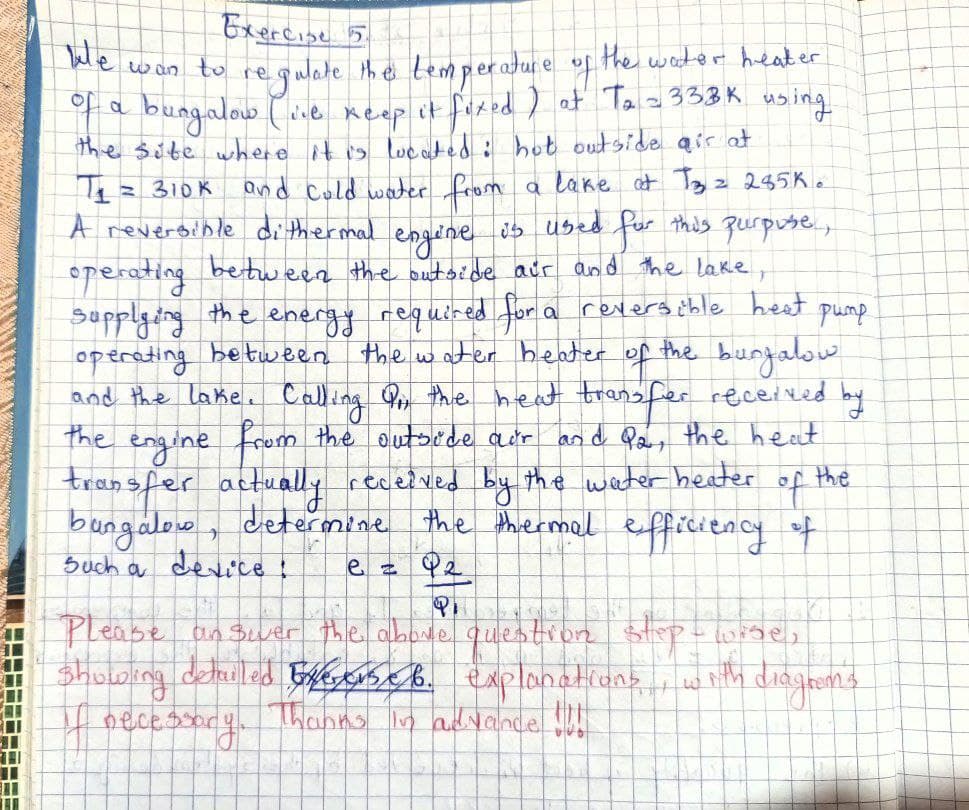 Exercise 5.
We wan to regulate the temperature of the water heater
of a bungalow (i.e keep it fixed) at T2 = 333K using
the site where it is located : hot outside air at
T1 = 310K and cold water from a lake at T3 = 285K.
A reversible dithermal engine is used for this purpose,
operating between the outside air and the lake,
supplying the energy required for a reversible heat pump
operating between the water heater of the bungalow
and the lake. Calling Q1, the heat transfer received by
the engine from the outside air and Q2, the heat
transfer actually received by the water heater of the
bungalow, determine the thermal efficiency of
such a device : e = Q2
Q1
Please answer the above question step-wise,
showing detailed explanations, with diagrams
if necessary. Thanks in advance !!!